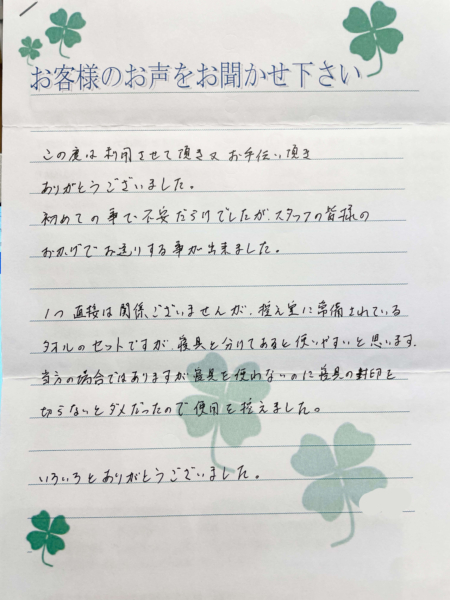 お客様のお声をお聞かせ下さい
この度は利用させて頂き又お手伝い頂き
ありがとうございました。
初めての事で不安だらけでしたが、スタッフの皆様の
おかげでお送りする事が出来ました。
1つ直接は関係ございませんが、控え室に常備されている
タオルのセットですが、寝具と分けてあると使いやすいと思います。
当方の場合ではありますが寝具を使わないのに寝具の封印を
切らないとダメだったので使用を控えました。
いろいろとありがとうございました。